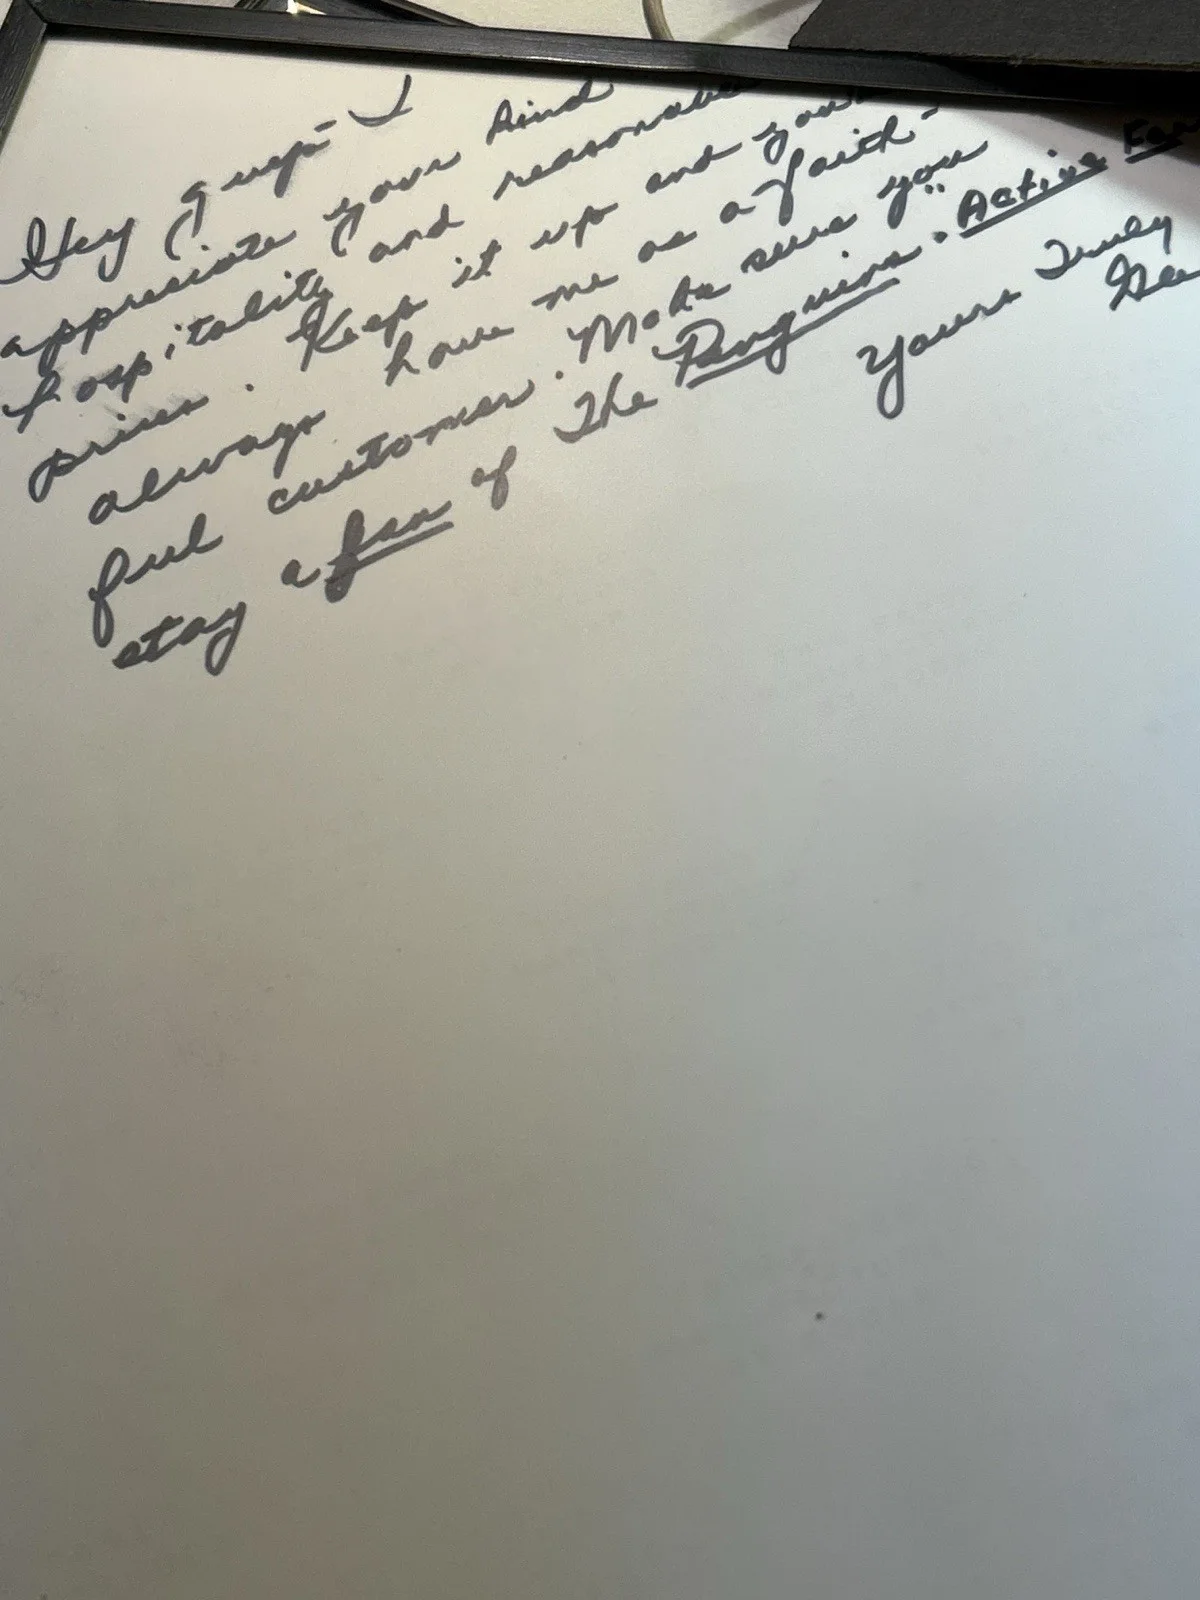 Hey guys - I
appreciate your kind
hospitality and reasonable
prices. Keep it up and you'll
always have me as a faith-
ful customer. Make sure you
stay a fan of The Penguins. "Active
Yours Truly